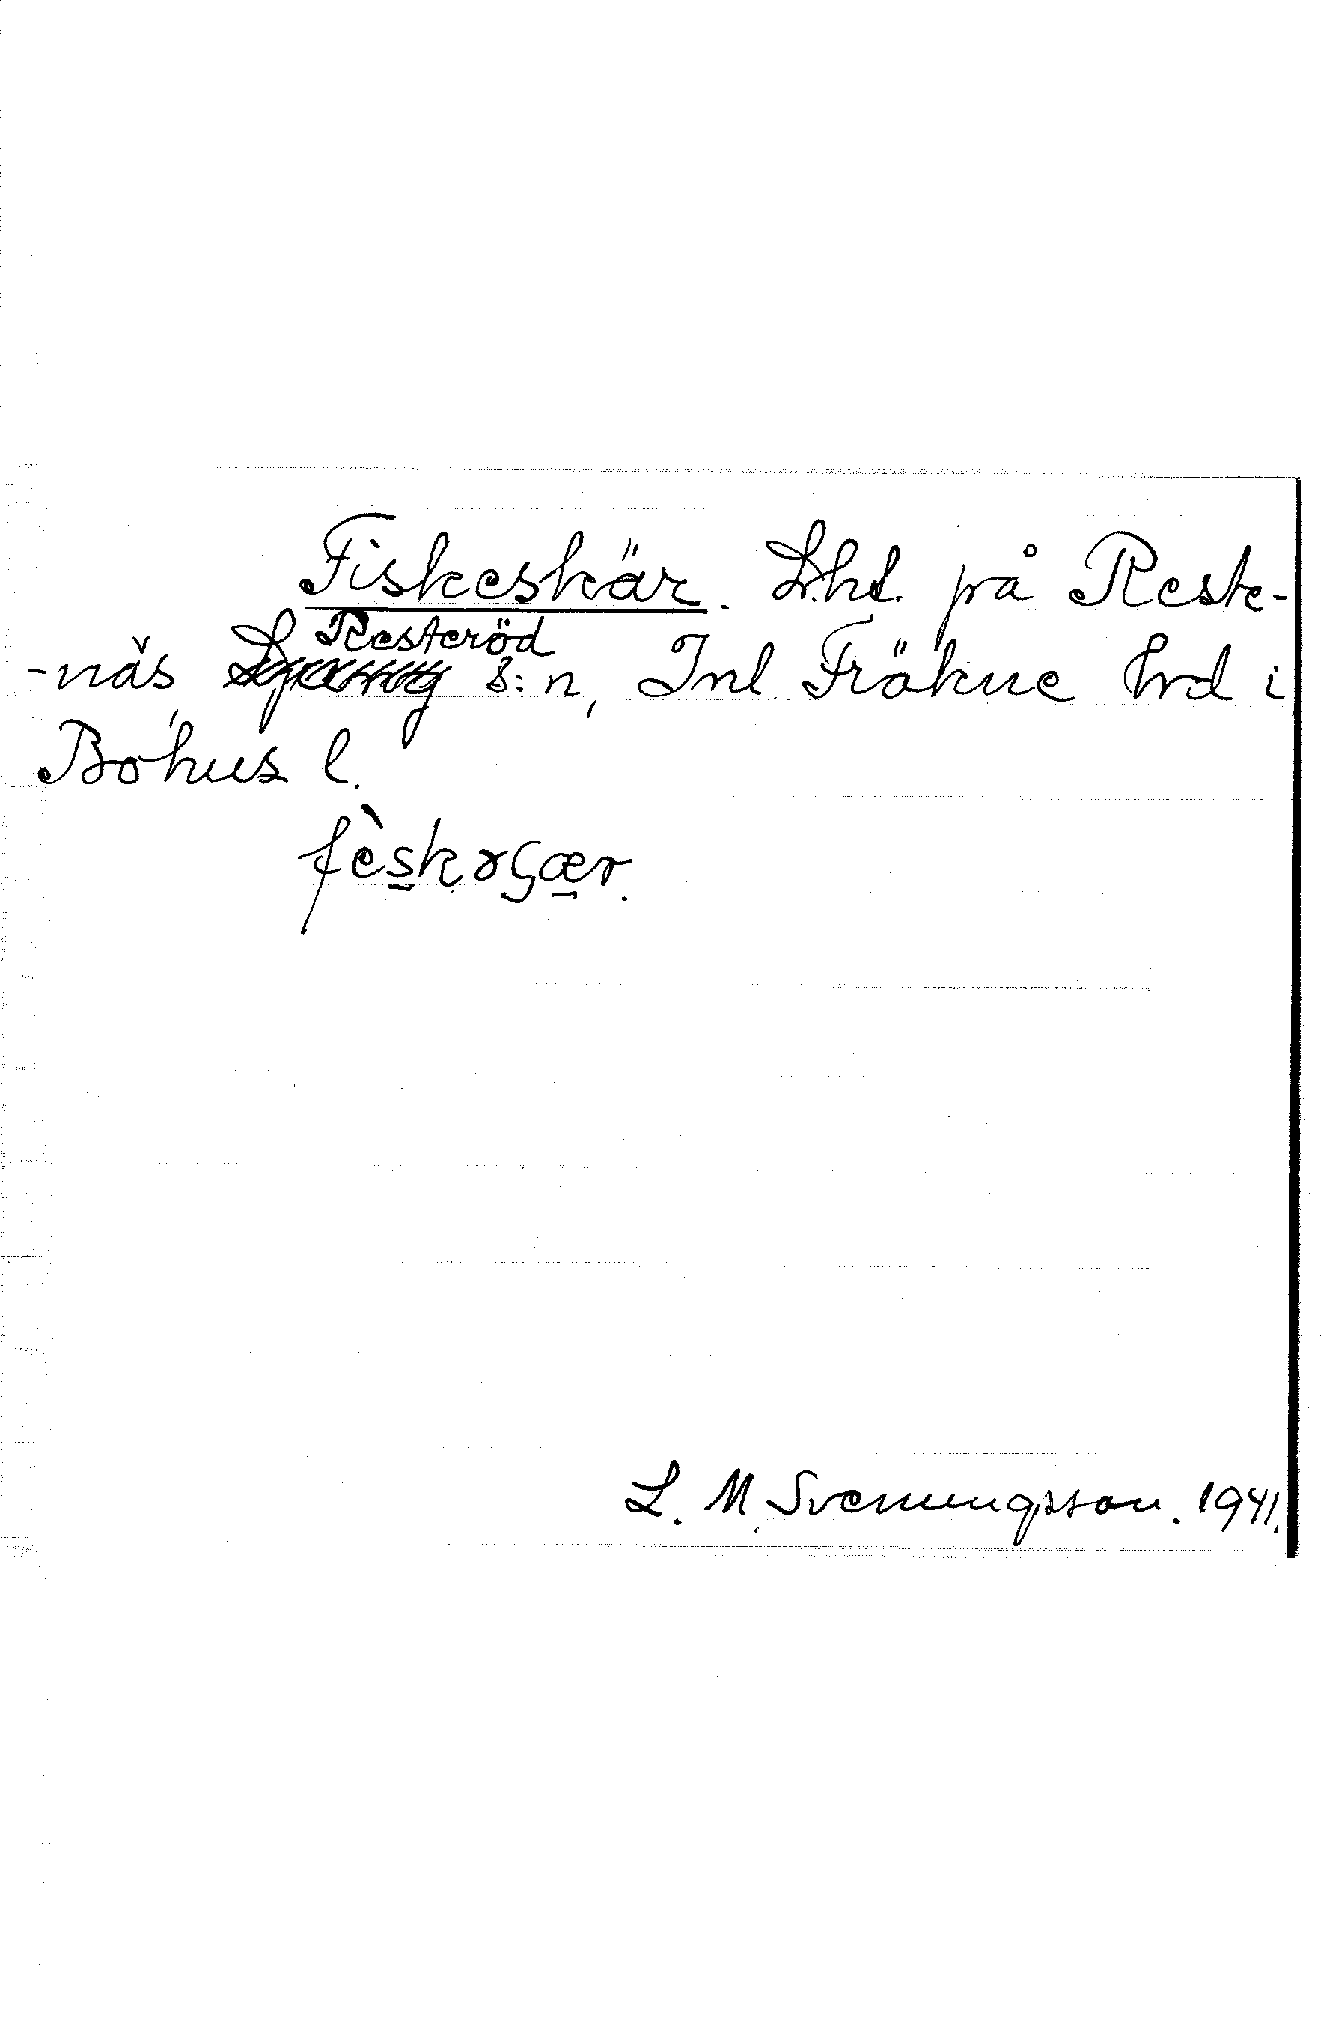 Fiskeskär. Lht. på Reste-
-näs, Resteröd s:n, Inl Fräkne hrd i
Bohus l.
fèskəʂær.
L. M. Svenungsson. 1941.